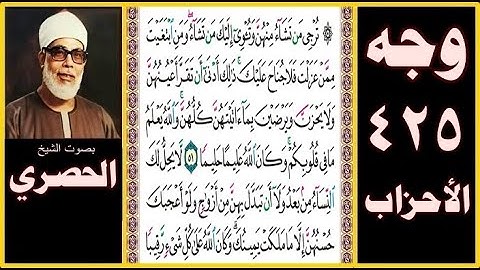 وجه
٤٢٥
الأحزاب
۞ تُرْجِي مَن تَشَآءُ مِنْهُنَّ وَتُـْٔوِىٓ إِلَيْكَ مَن تَشَآءُ ۖ وَمَنِ ٱبْتَغَيْتَ
مِمَّنْ عَزَلْتَ فَلَا جُنَاحَ عَلَيْكَ ۚ ذَٰلِكَ أَدْنَىٰٓ أَن تَقَرَّ أَعْيُنُهُنَّ
وَلَا يَحْزَنَّ وَيَرْضَيْنَ بِمَآ ءَاتَيْتَهُنَّ كُلُّهُنَّ ۚ وَٱللَّهُ يَعْلَمُ
مَا فِى قُلُوبِكُمْ ۚ وَكَانَ ٱللَّهُ عَلِيمًا حَلِيمًا ٥١ لَّا يَحِلُّ لَكَ
ٱلنِّسَآءُ مِنۢ بَعْدُ وَلَآ أَن تَبَدَّلَ بِهِنَّ مِنْ أَزْوَٰجٍ وَلَوْ أَعْجَبَكَ
حُسْنُهُنَّ إِلَّا مَا مَلَكَتْ يَمِينُكَ ۗ وَكَانَ ٱللَّهُ عَلَىٰ كُلِّ شَىْءٍ رَّقِيبًا
بصوت الشيخ
الحصري